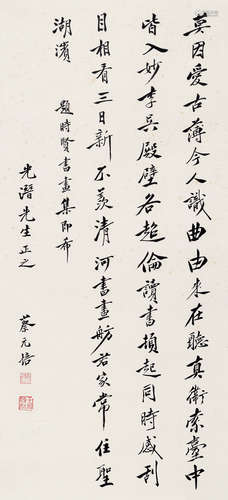 莫因愛古薄今人識曲由來在聽真衛索臺中
皆入妙李吳殿壁各超倫讀書損起同時感刮
目相看三日新不羨清河書畫舫君家常住聖
湖濱
題時賢書畫集即希
光潛先生正之
蔡元培